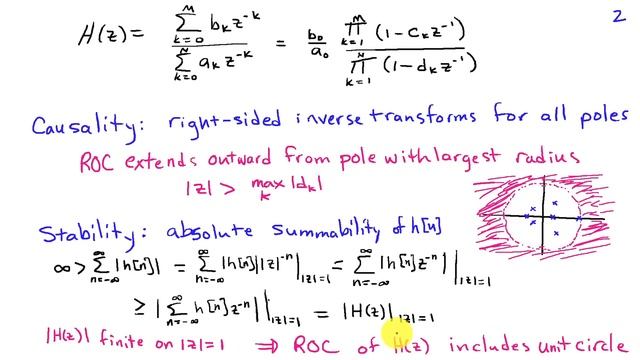 2
H(z) = \frac{\sum_{k=0}^{M} b_k z^{-k}}{\sum_{k=0}^{N} a_k z^{-k}} = \frac{b_0}{a_0} \frac{\prod_{k=1}^{M} (1 - c_k z^{-1})}{\prod_{k=1}^{N} (1 - d_k z^{-1})}
Causality: right-sided inverse transforms for all poles
ROC extends outward from pole with largest radius
|z| > \max_k |d_k|
Stability: absolute summability of h[n]
∞ > \sum_{n=-∞}^{∞} |h[n]| = \sum_{n=-∞}^{∞} |h[n]| |z|^{-n} |_{|z|=1} = \sum_{n=-∞}^{∞} |h[n] z^{-n}| |_{|z|=1}
≥ |\sum_{n=-∞}^{∞} h[n] z^{-n}| |_{|z|=1} = |H(z)|_{|z|=1}
|H(z)| finite on |z|=1 ⇒ ROC of H(z) includes unit circle